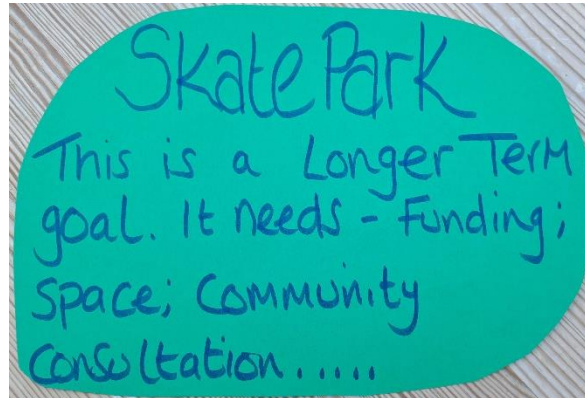 Skate Park
This is a Longer Term
goal. It needs - Funding;
Space; Community
Consultation.....